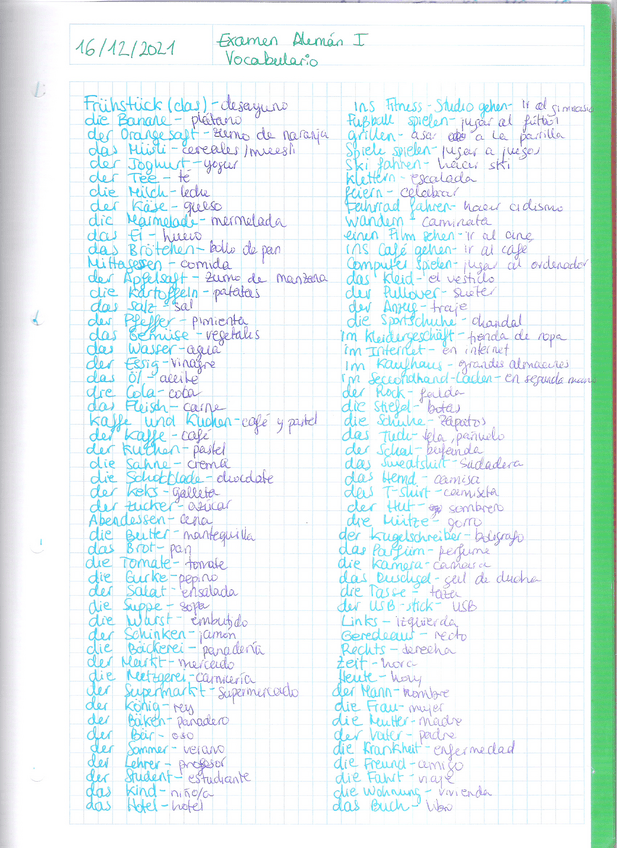 16/12/2021
Examen Alemán I
Vocabulario
Frühstück (das) - desayuno
die Banane - plátano
der Orangesaft - zumo de naranja
das Müsli - cereales/muesli
der Joghurt - yogur
der Tee - té
die Milch - leche
der Käse - queso
die Marmelade - mermelada
das Ei - huevo
das Brötchen - bollo de pan
Mittagessen - comida
der Apfelsaft - zumo de manzana
die Kartoffeln - patatas
das Salz - sal
der Pfeffer - pimienta
das Gemüse - vegetales
das Wasser - agua
der Essig - vinagre
das Öl - aceite
die Cola - cola
das Fleisch - carne
Kaffe und Kuchen - café y pastel
der Kaffe - café
der Kuchen - pastel
die Sahne - crema
die Schokolade - chocolate
der Keks - galleta
der Zucker - azúcar
Abendessen - cena
die Butter - mantequilla
das Brot - pan
die Tomate - tomate
die Gurke - pepino
der Salat - ensalada
die Suppe - sopa
die Wurst - embutido
der Schinken - jamón
die Bäckerei - panadería
der Markt - mercado
die Metzgerei - carnicería
der Supermarkt - supermercado
der König - rey
der Bäken - panadero
der Bär - oso
der Sommer - verano
der Lehrer - profesor
der Student - estudiante
das Kind - niño/a
das Hotel - hotel
ins Fitness-Studio gehen - ir al gimnasio
Fußball spielen - jugar al fútbol
grillen - asar a la parrilla
Spiele spielen - jugar a juegos
Ski fahren - hacer ski
klettern - escalada
feiern - celebrar
Fahrrad fahren - hacer ciclismo
wandern - caminata
einen Film sehen - ir al cine
ins Café gehen - ir al café
Computer spielen - jugar al ordenador
das Kleid - el vestido
der Pullover - sueter
der Anzug - traje
die Sportschuhe - chandal
im Kleidergeschäft - tienda de ropa
im Internet - en internet
im Kaufhaus - grandes almacenes
im Secondhand-Laden - en segunda mano
der Rock - falda
die Stiefel - botas
die Schuhe - zapatos
das Tuch - tela, pañuelo
der Schal - bufanda
das Sweatshirt - sudadera
das Hemd - camisa
das T-Shirt - camiseta
der Hut - sombrero
die Mütze - gorro
der Kugelschreiber - bolígrafo
das Parfüm - perfume
die Kamera - camara
das Duschgel - gel de ducha
die Tasse - taza
der USB-Stick - USB
Links - izquierda
Geredeaus - recto
Rechts - derecha
Zeit - hora
Heute - hoy
der Mann - hombre
die Frau - mujer
die Mutter - madre
der Vater - padre
die Krankheit - enfermedad
die Freund - amigo
die Fahrt - viaje
die Wohnung - vivienda
das Buch - libro